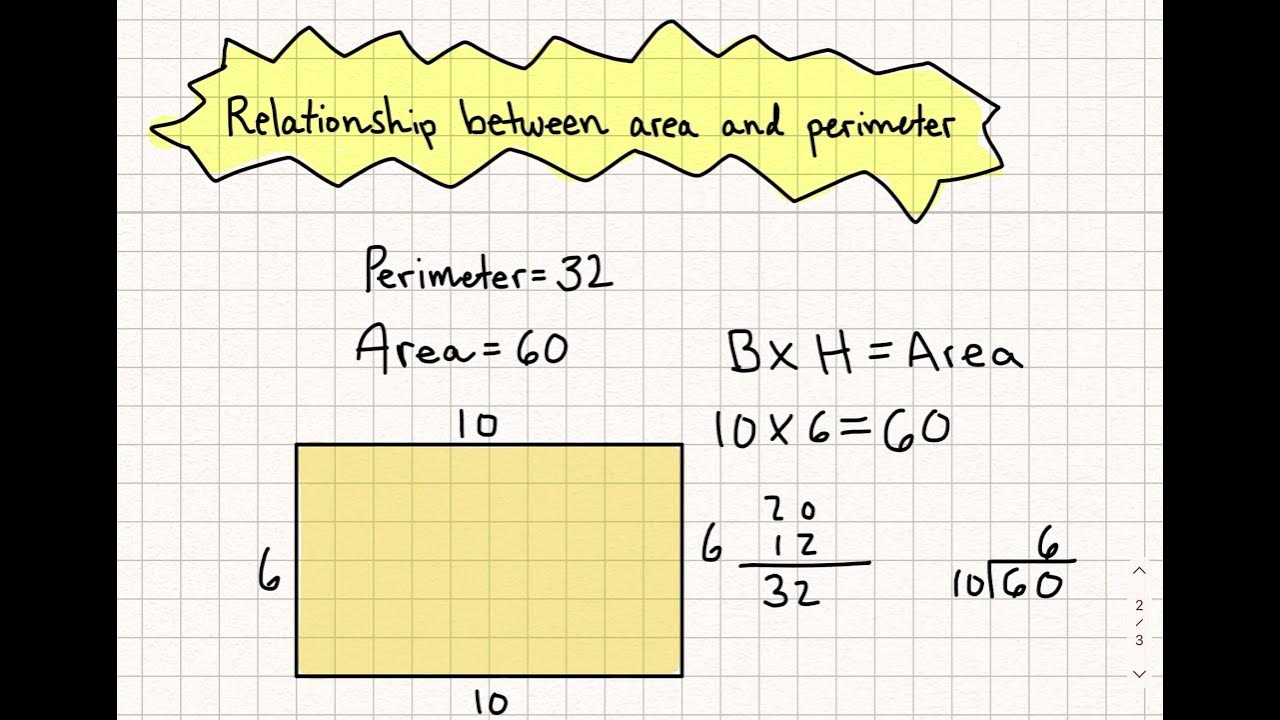 Relationship between area and perimeter
Perimeter = 32
Area = 60
B x H = Area
10
10 x 6 = 60
20
6
6
12
6
32
10 60
10
2
/
3